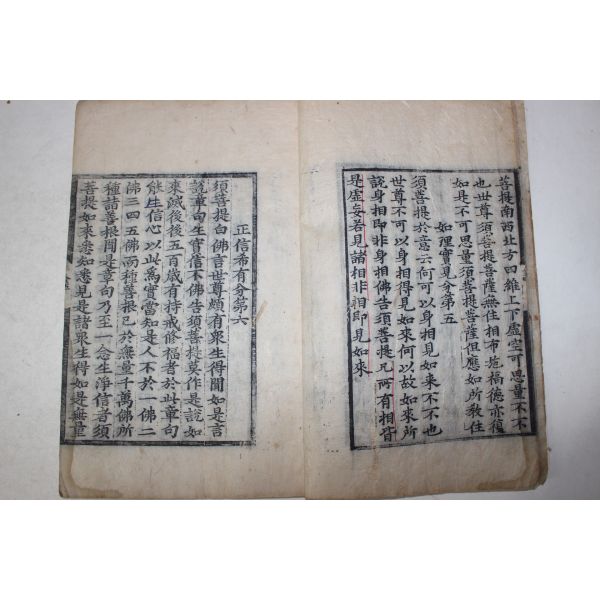 菩提南西北方四維上下虛空可思量不不
也世尊須菩提菩薩無住相布施福德亦復
如是不可思量須菩提菩薩但應如所敎住
如理實見分第五
須菩提於意云何可以身相見如來不不也
世尊不可以身相得見如來何以故如來所
說身相卽非身相佛告須菩提凡所有相皆
是虛妄若見諸相非相卽見如來
正信希有分第六
須菩提白佛言世尊頗有衆生得聞如是言
說章句生實信不佛告須菩提莫作是說如
來滅後後五百歲有持戒修福者於此章句
能生信心以此爲實當知是人不於一佛二
佛三四五佛而種善根已於無量千萬佛所
種諸善根聞是章句乃至一念生淨信者須
菩提如來悉知悉見是諸衆生得如是無量